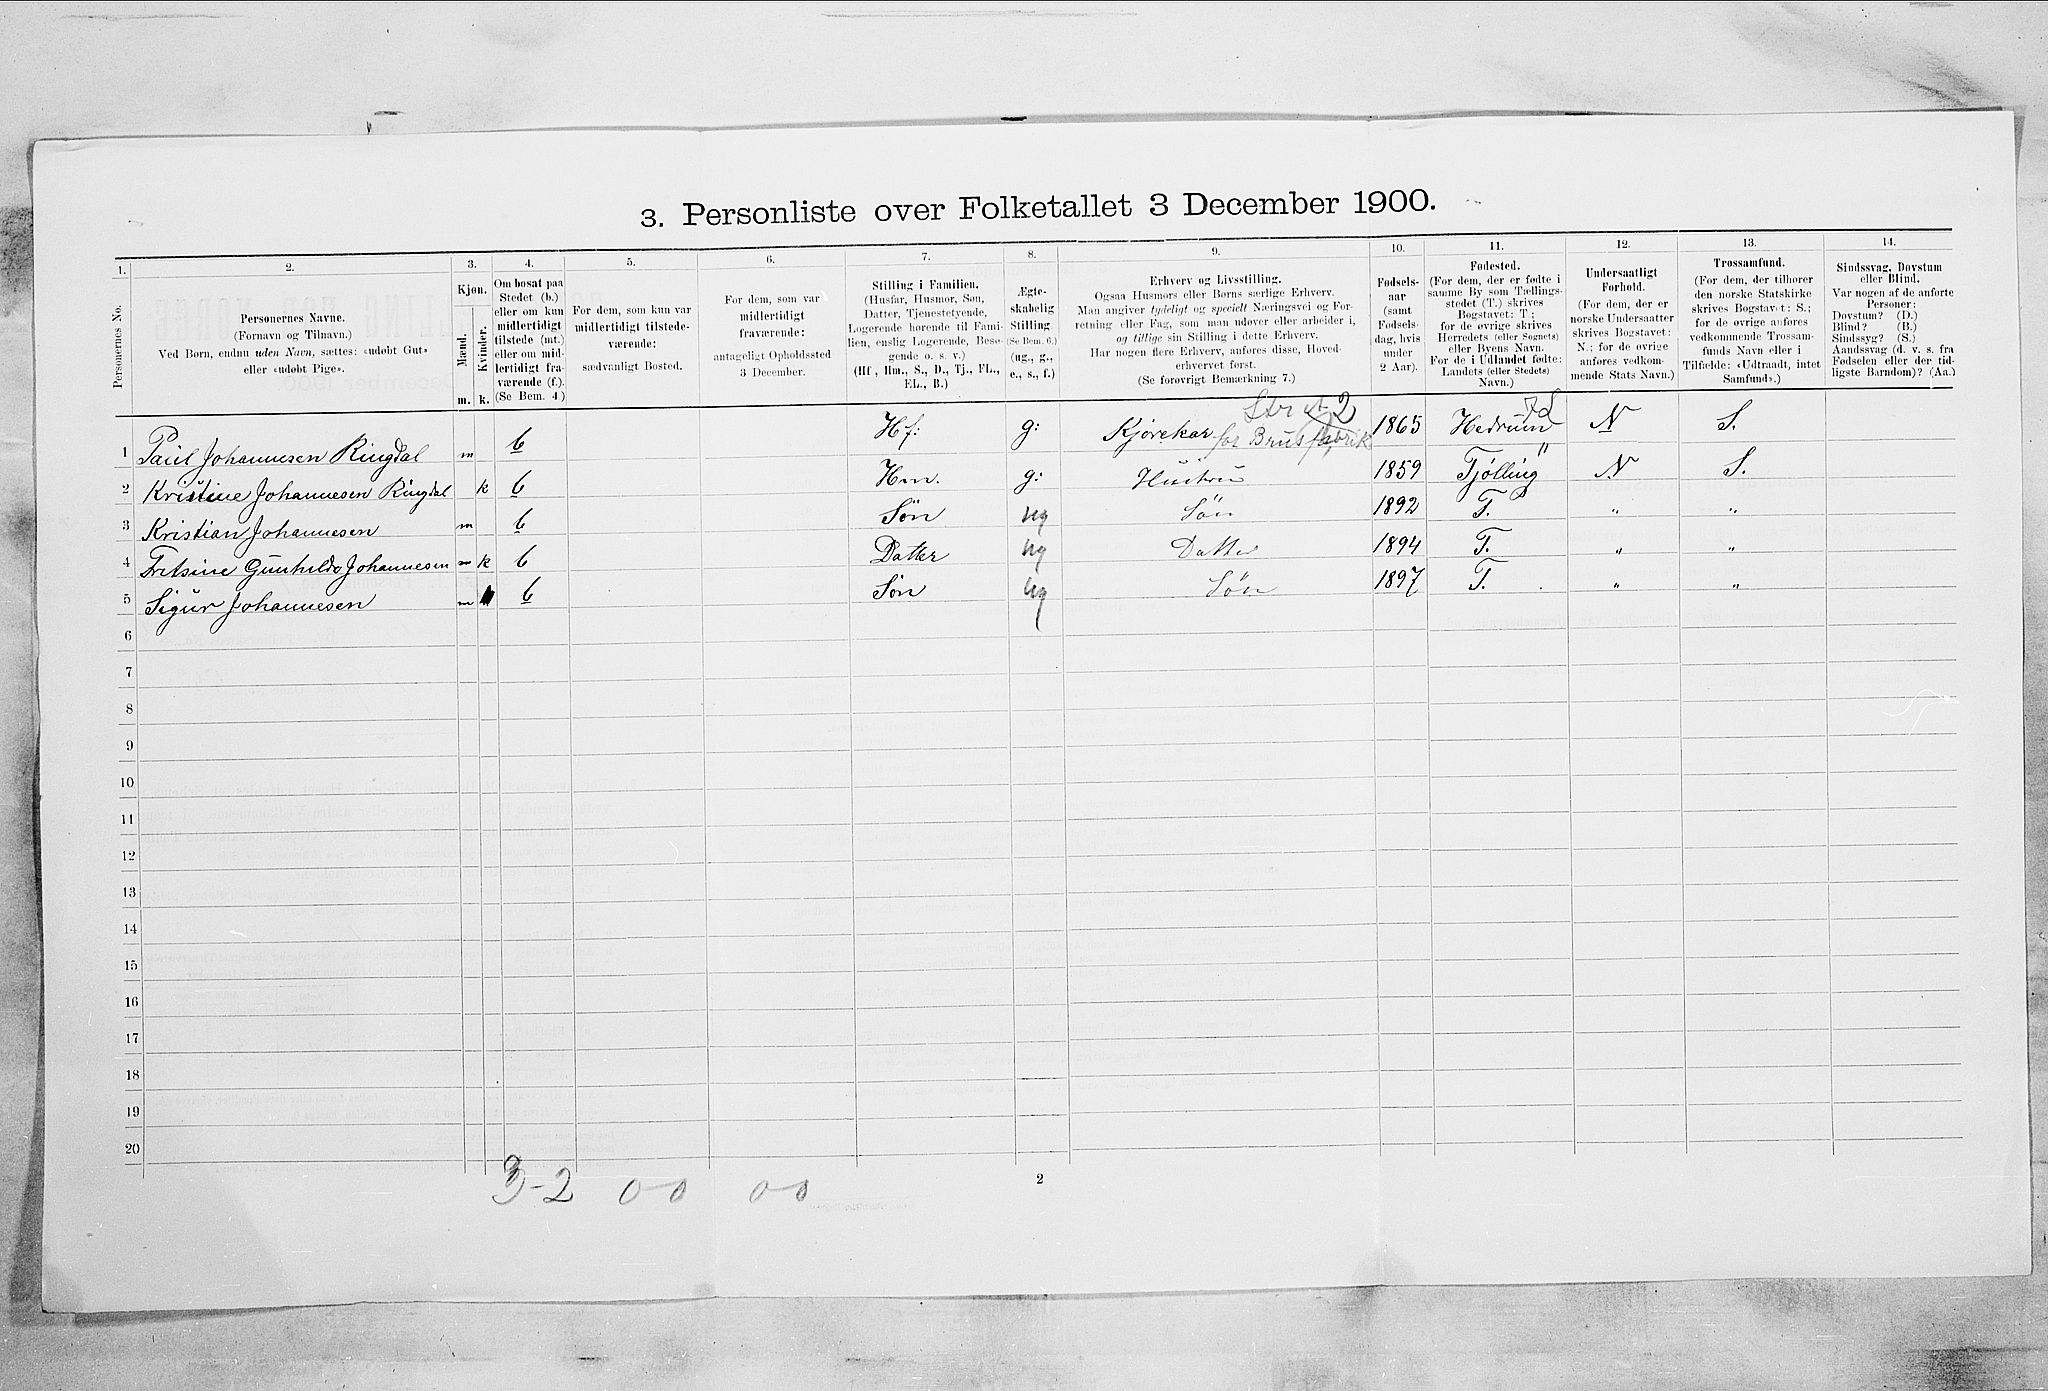 3. Personliste over Folketallet 3 December 1900.
1. 2. 3. 4. 5. 6. 7. 8. 9. 10. 11. 12. 13. 14.
Personernes No.
Personernes Navne.
(Fornavn og Tilnavn.)
Ved Børn, endnu uden Navn, sættes: «udøbt Gut»
eller «udøbt Pige».
Kjøn.
Mænd.
Kvinder.
m. k.
Om bosat paa
Stedet (b.)
eller om kun
midlertidigt
tilstede (mt.)
eller om mid-
lertidigt fra-
værende (f.).
(Se Bem. 4)
For dem, som kun var
midlertidigt tilstede-
værende:
sædvanligt Bosted.
For dem, som var
midlertidigt
fraværende:
antageligt Opholdssted
3 December.
Stilling i Familien.
(Husfar, Husmor, Søn,
Datter, Tjenestetyende,
Logerende hørende til Fami-
lien, enslig Logerende, Besø-
gende o. s. v.)
(Hf, Hm., S., D., Tj., FL.,
EL., B.)
Ægte-
skabelig
Stilling
(Se Bem. 6.)
(ug., g.,
e., s., f.)
Erhverv og Livsstilling.
Ogsaa Husmors eller Børns særlige Erhverv.
Man angiver tydeligt og specielt Næringsvei og For-
retning eller Fag, som man udøver eller arbeider i,
og tillige sin Stilling i dette Erhverv.
Har nogen flere Erhverv, anføres disse, Hoved-
erhvervet først.
(Se forøvrigt Bemærkning 7.)
Fødsels-
aar
(samt
Fødsels-
dag, hvis
under
2 Aar).
Fødested.
(For dem, der er fødte i
samme By som Tællings-
stedet (T.) skrives
Bogstavet: T.;
for de øvrige skrives
Herredets (eller Sognets)
eller Byens Navn.
For de i Udlandet fødte:
Landets (eller Stedets)
Navn.)
Undersaatligt
Forhold.
(For dem, der er
norske Undersaatter
skrives Bogstavet:
N.; for de øvrige
anføres vedkom-
mende Stats Navn.)
Trossamfund.
(For dem, der tilhører
den norske Statskirke
skrives Bogstavet: S.;
for de øvrige anføres
vedkommende Trossam-
funds Navn eller i
Tilfælde: «Udtraadt, intet
Samfund».)
Sindssvag, Døvstum
eller Blind.
Var nogen af de anførte
Personer:
Døvstum? (D.)
Blind? (B.)
Sindssyg? (S.)
Aandssvag (d. v. s. fra
Fødselen eller der tid-
ligste Barndom)? (Aa.)
1 Paul Johannesen Ringdal m b Hf: g: Kjørekar for Brusfabrik 1865 Hedrum N S.
2 Kristine Johannesen Ringdal k b Hm. g: Hustru 1859 Tjølling N S.
3 Kristian Johannesen m b Søn ug Søn 1892 T. " "
4 Fretsine Gunhilda Johannesen m k b Datter ug Datter 1894 T. " "
5 Sigur Johannesen m b Søn ug Søn 1897 T. " "
6
7
8
9
10
11
12
13
14
15
16
17
18
19
20
3-2 0-0 0-0
2